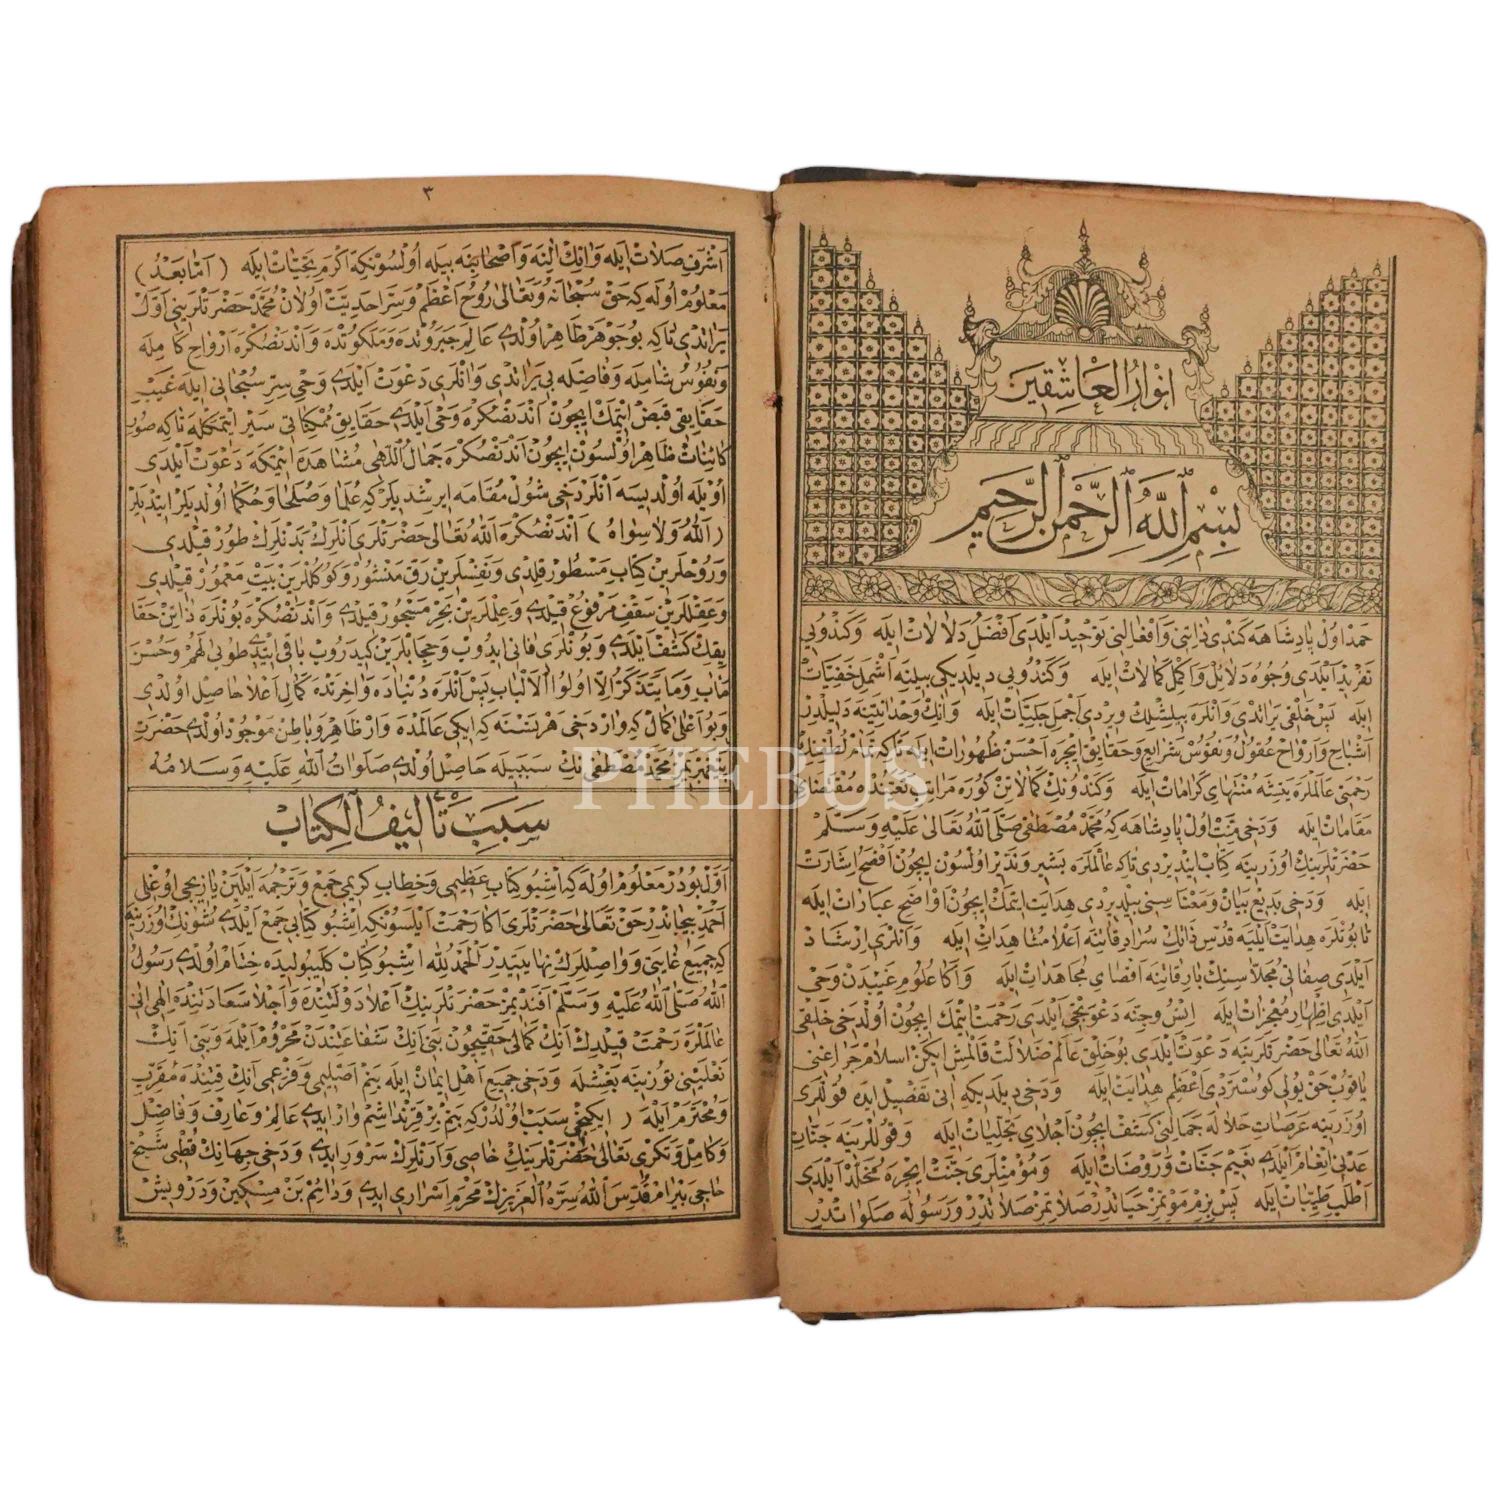 انوار العاشقين
بسم الله الرحمن الرحيم
حمد اول پادشاهه كندى ذاتنى و افعالنى توحيد ايلدى افضل دلالات ايله وكندويى
تفريد ايلدى وجوه دلائل و اكمل كمالات ايله وكندويى ديلديكى بيلينه اشمل خفيات
ايله پس خلقى يراتدى و انلره بيلشلك ويردى اجمل جليات ايله وانك وحدانيتنه دليلدر
اشباح وارواح عقول ونفوس شرايع وحقايق ايچره احسن ظهورات ايله
رحمتى عالملره يتيشه منتهاى كرامات ايله وكندونك كمالاتن كوره مراتب
مقامات ايله ودخى منت اول پادشاهه كه محمد مصطفى صلى الله تعالى عليه وسلم
حضرتلرينك اوزرينه كتاب اينديردى تاكه عالملره بشير ونذير اولسون ايچون افصح اشارت
ايله ودخى بديع بيان ومعناسنى بيلديردى هدايت ايتمك ايچون اواضح عبارات ايله
تا بونلره هدايت ايليه قدس ذاتك سرادقاتنه اعلا مشاهدات ايله وانلرى ارشاد
ايلدى صفاتى مجلاسنك بارقاتنه اقصاى مجاهدات ايله واكا علوم غيبدن وحى
ايلدى اظهار معجزات ايله انس وجنه دعوتجى ايلدى رحمت ايتمك ايچون اولدخى خلقى
الله تعالى حضرتلرينه دعوت ايلدى بو خلق عالم ضلالت قالمش ايكن اسلام
حق يولى كوستردى اعظم هدايت ايله ودخى ديلديكه انى تفضيل ايده قوللرى
اوزرينه عرصات جمالنى كشف ايچون اجلاى تجليات ايله وقوللرينه جنات
عدنى انعام ايلدى نعيم جنات وروضات ايله ومؤمنلرى جنت ايچره مخلد ايلدى
اطلب طيبات ايله پس بزم موتمز حياتدر صلاتمز صلاتدر ورسوله صلواتدر
٣
اشرف صلات ايله وانك آلنه و اصحابنه بيله اولسونكه اكرم تحيات ايله ( اما بعد )
معلوم اوله كه حق سبحانه وتعالى روح اعظم وسر احديت اولان محمد حضرتلرينى اول
يراتدى تاكه بو جوهر ظاهر اولدى عالم جبروتده وملكوتده واندنصكره ارواح كامله
ونفوس شامله وفاضله يى يراتدى وانلرى دعوت ايلدى وحى سر سبحانى ايله غيب
حقايقى قبض ايتمك ايچون اندنصكره وحى ايلدى حقايق ممكناتى سير ايتمكله تاكه صور
كائنات ظاهر اولسون ايچون اندنصكره جمال اللهى مشاهده ايتمكه دعوت ايلدى
اويله اولديسه انلر دخى شول مقامه ايرشديلركه علما وصلحا وحكما اولديلر ايتديلر
( الله ولا سواه ) اندنصكره الله تعالى حضرتلرى انلرك بدنلرن طور قيلدى
وروحلرين كتاب مسطور قلدى ونفسلرين رق منشور وكوكللرين بيت معمور قيلدى
وعقللرين سقف مرفوع قيلدى وعلملرين بحر مسجور قيلدى واندنصكره بونلره ذاتن حقا
يقن كشف ايلدى وبونلرى فانى ايدوب وحجابلرين كيدروب باقى ايتدى طوبى لهم وحسن
مآب وما يتذكر الا اولوا الالباب پس انلره دنياده واخرتده كمال اعلا حاصل اولدى
وبو اعلى كمال كه واردخى هر نسنه كه ايكى عالمده وارظاهر وباطن موجود اولدى حضرت
پيغمبريمز محمد مصطفى نك سببيله حاصل اولدى صلوات الله عليه وسلامه
سبب تأليف الكتاب
اول بودر معلوم اوله كه اشبو كتاب عظيمى وخطاب كريمى جمع وترجمه ايلين يازيجى اوغلى
احمد بيجاندر حق تعالى حضرتلرى اكا رحمت ايلسونكه اشبو كتابى جمع ايلدى شونك اوزرينه
كه جميع غايتى وواصللرك نهايتيدر الحمد لله اشبو كتاب كليبوليده ختام اولدى رسول
الله صلى الله عليه وسلم افنديمز حضرتلرينك اعلا دولتنده واجلا سعادتنده الهى انى
عالملره رحمت قيلدك انك كمالى حقيچون بنى انك شفاعتندن محروم ايلمه وبنى انك
نعلينى توزينه بغشله ودخى جميع اهل ايمان ايله بنم اصليمى وفرعمى انك قتنده مقرب
ومحترم ايله ( ايكنجى سبب اولدركه بنم بر قرنداشم وار ايدى عالم وعارف وفاضل
وكامل وتكرى تعالى حضرتلرينك خاصى وارنلرك سرور ايدى ودخى جهانك قطبى شيخ
حاجى بيرام قدس الله سره العزيزك محرم اسرارى ايدى ودائم بن مسكين ودرويش
PHEBUS